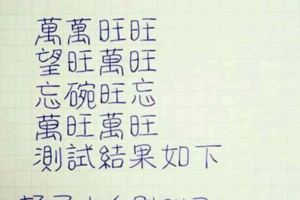 萬萬旺旺
望旺萬旺
忘碗旺忘
萬旺萬旺
測試結果如下